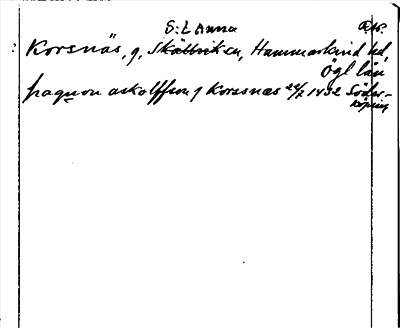 S:t Anna
Korsnäs, g, Skällvik sn, Hammarkind hd,
Ögl län
haquon askolffson j Korssnæs 22/2 1452 Söder-
köping